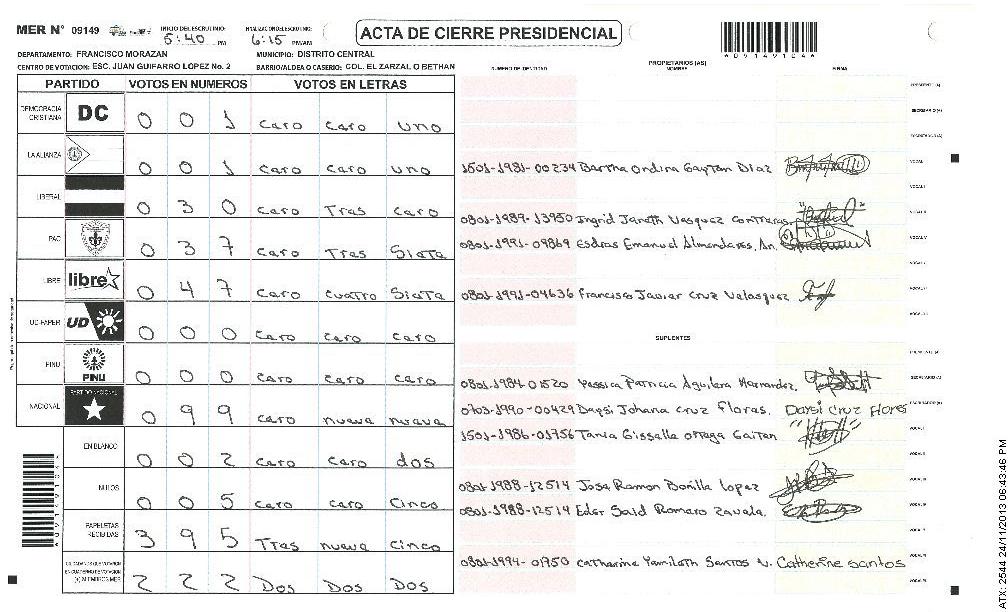 MER N° 09149 INICIO DEL ESCRUTINIO: 5:40 PM FINALIZACION DEL ESCRUTINIO: 6:15 PM/AM ACTA DE CIERRE PRESIDENCIAL
DEPARTAMENTO: FRANCISCO MORAZAN MUNICIPIO: DISTRITO CENTRAL
CENTRO DE VOTACION: ESC. JUAN GUIFARRO LOPEZ No. 2 BARRIO/ALDEA O CASERIO: COL. EL ZARZAL O BETHAN
NUMERO DE IDENTIDAD PROPIETARIOS (AS) NOMBRE FIRMA
PARTIDO VOTOS EN NUMEROS VOTOS EN LETRAS
DEMOCRACIA CRISTIANA DC 0 0 1 caro caro uno
LA ALIANZA 0 0 1 caro caro uno
1501-1981-00234 Bertha Ondina Gaytan Diaz
LIBERAL 0 3 0 caro Tras caro
0801-1989-13950 Ingrid Janeth Vasquez Contreras
PAC 0 3 7 caro Tras Siata
0801-1991-09869 Esdras Emanuel Almendares, An.
LIBRE libre 0 4 7 caro cuatro Siata
0801-1991-04636 Francisco Javier Cruz Velasquez
UD-FAPER UD 0 0 0 caro caro caro
SUPLENTES
PINU PINU 0 0 0 caro caro caro
0801-1984-01520 Yessica Patricia Aguilera Hernandez.
NACIONAL PARTIDO NACIONAL 0 9 9 caro nueva nueva
0703-1990-00429 Daysi Johana Cruz Floras. Daysi Cruz Flores
1501-1986-01756 Tania Gissella Ortega Gaitan
EN BLANCO 0 0 2 caro caro dos
NULOS 0 0 5 caro caro cinco
0801-1988-12514 Jose Ramon Bonilla Lopez
0801-1988-12514 Eder Said Romero Zavala.
PAPELETAS RECIBIDAS 3 9 5 Tras nueva cinco
CIUDADANOS QUE VOTARON EN CUADERNO DE VOTACION (+) MIEMBROS MER 2 2 2 Dos Dos Dos
0801-1994-01750 Catharine Yamileth Santos V. Catherine santos
ATX: 2544 24/11/2013 06:43:46 PM